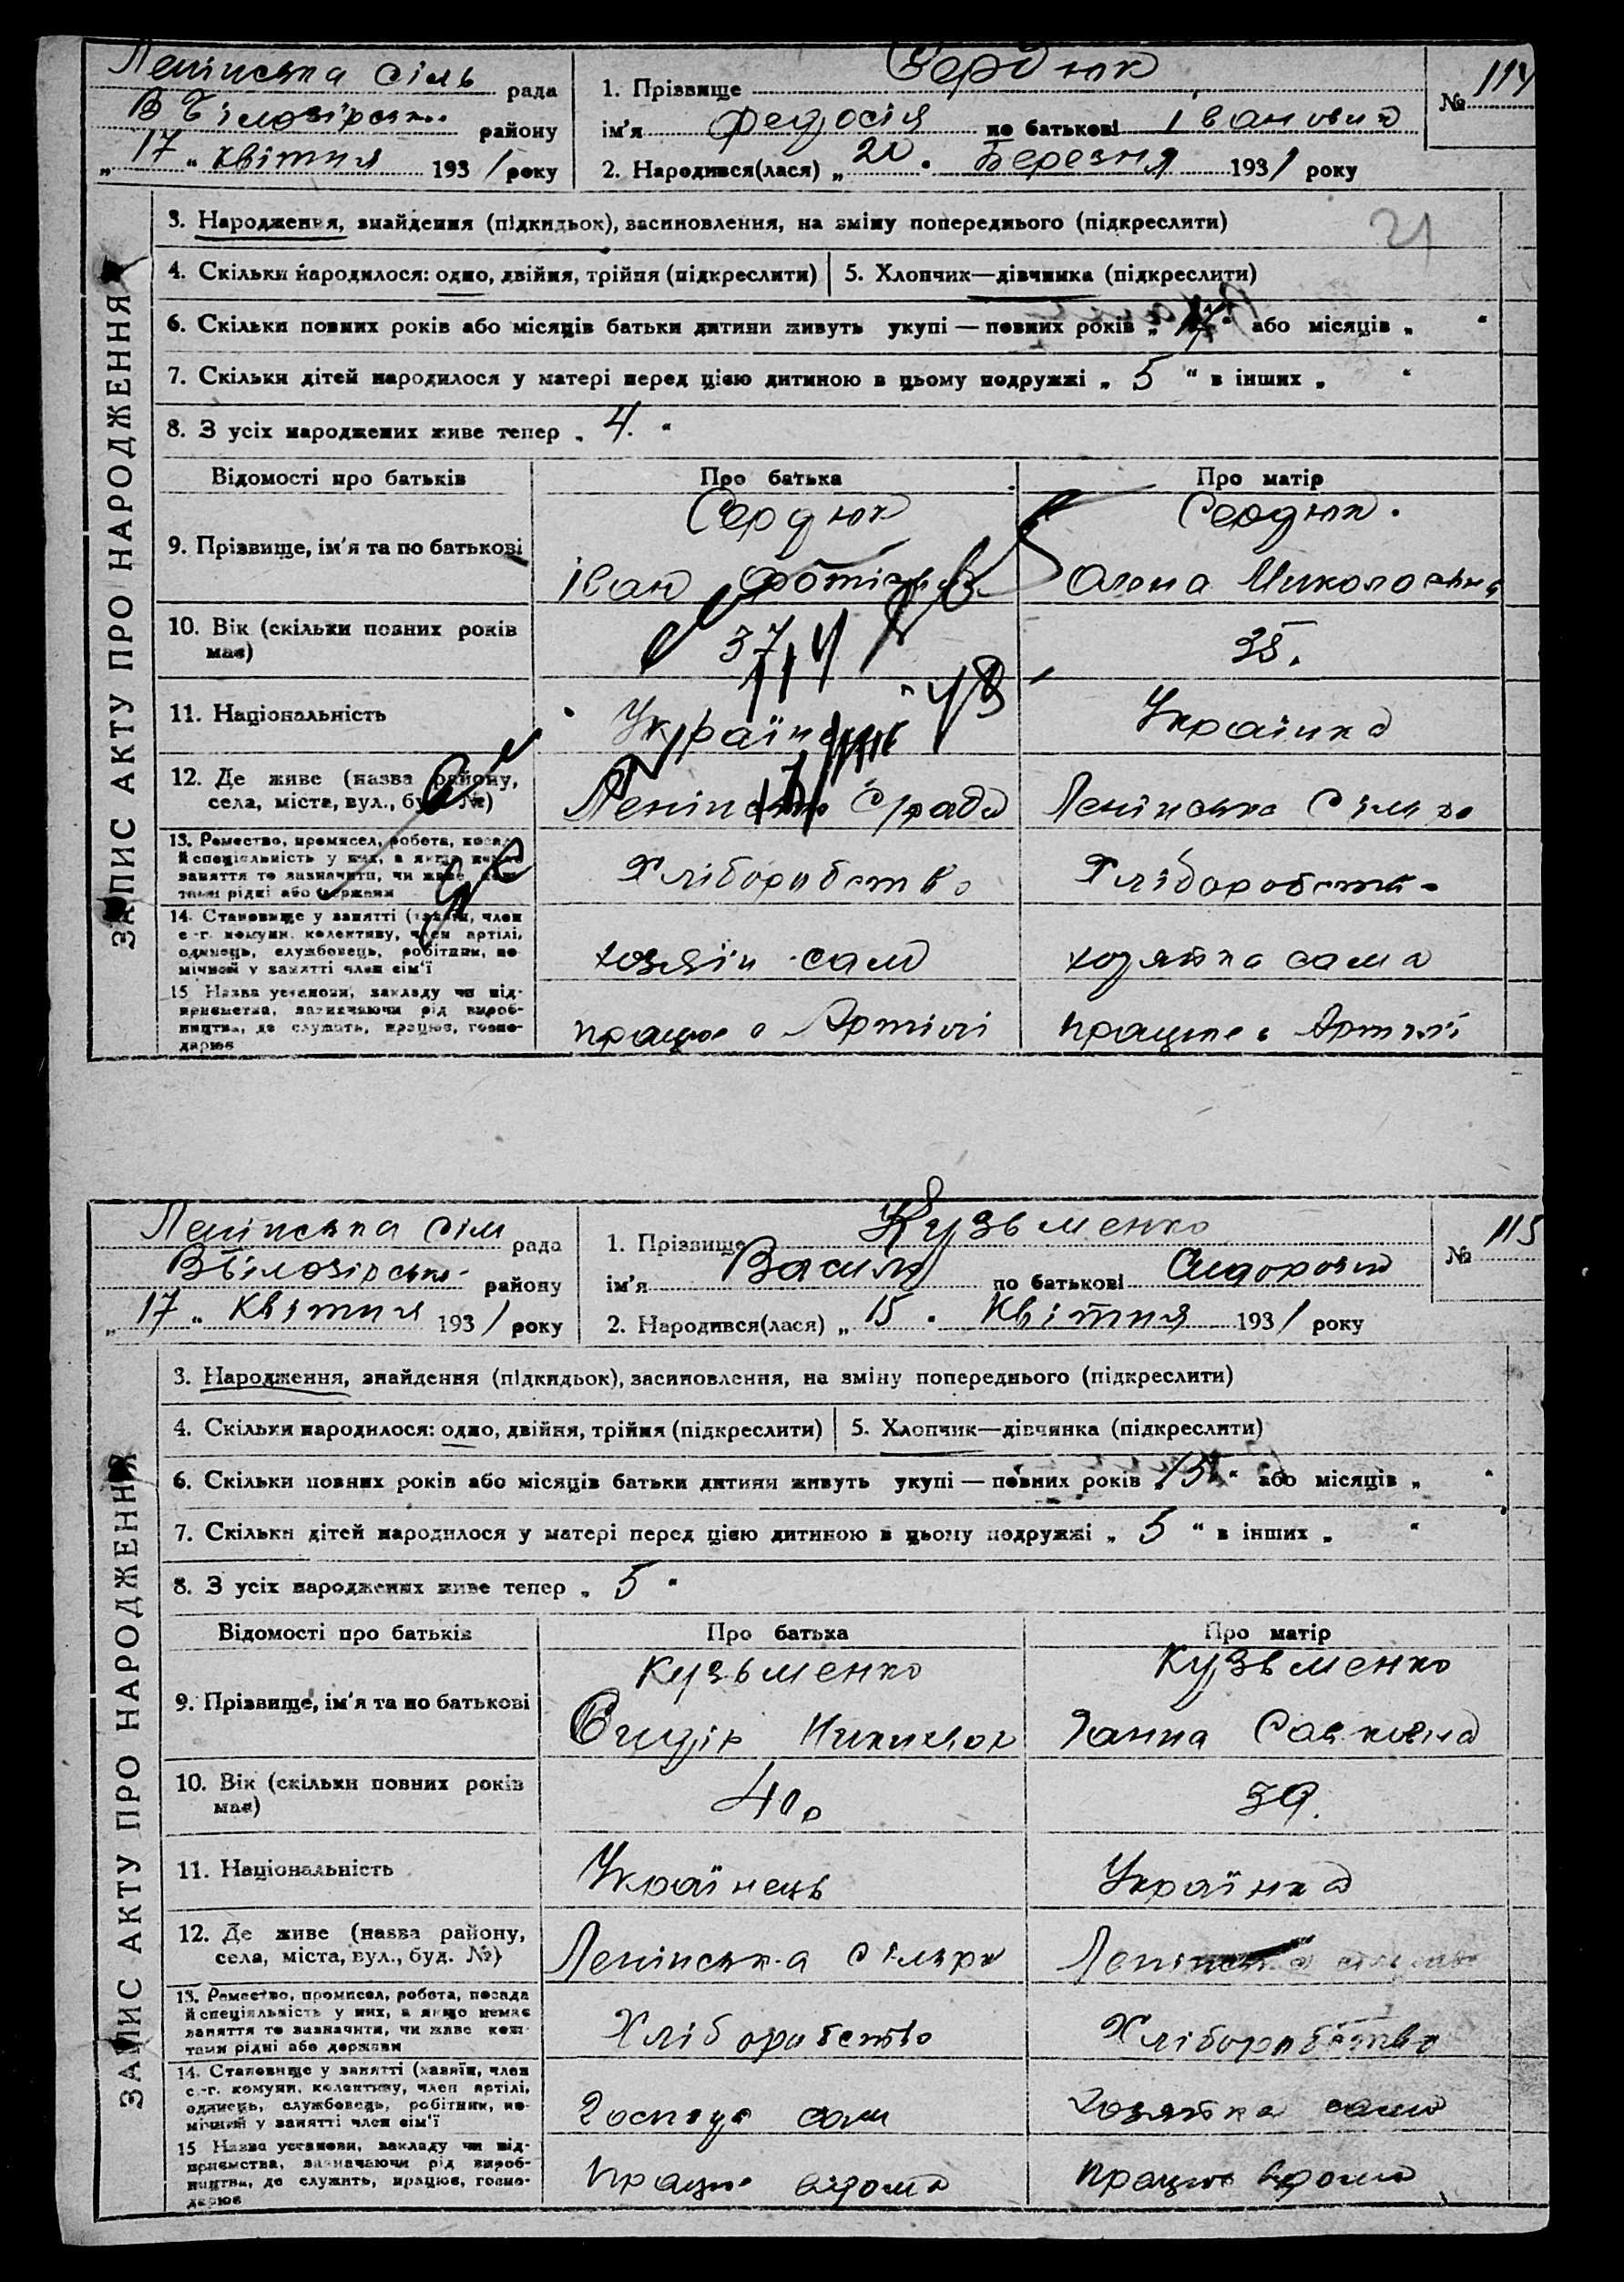 Ленінська сіль рада
В Білозірськ. району
„17“ квітня 1931 року
1. Прізвище Сердюк
ім'я Федосія по батькові Івановна
2. Народився(лася) „20“ Березня 1931 року
№ 114
21
ЗАПИС АКТУ ПРО НАРОДЖЕННЯ
3. Народження, знайдення (підкидьок), засиновлення, на зміну попереднього (підкреслити)
4. Скільки народилося: одно, двійня, трійня (підкреслити)
5. Хлопчик—дівчинка (підкреслити)
6. Скільки повних років або місяців батьки дитини живуть укупі — повних років „ “ або місяців „ “
7. Скільки дітей народилося у матері перед цією дитиною в цьому подружжі „ 5 “ в інших „ “
8. З усіх народжених живе тепер „ 4. “
Відомості про батьків
Про батька
Про матір
9. Прізвище, ім'я та по батькові
Сердюк
Іван
Сердюк.
Олена Миколаєвна
10. Вік (скільки повних років має)
37
35.
11. Національність
Українець
Українка
12. Де живе (назва району, села, міста, вул., буд. №)
Ленінська С/рада
Ленінська Сільра
13. Ремество, промисел, робота, посада й спеціяльність у них, а якщо немає заняття то зазначити, чи живе коштами рідні або держави
Хліборобство
Хліборобство
14. Становище у занятті (хазяїн, член с.-г. комуни, колективу, член артілі, одинець, службовець, робітник, помічний у занятті член сім'ї
хозяїн сам
хозяйка сама
15 Назва установи, закладу чи підприємства, зазначаючи рід виробництва, де служить, працює, господарює
працює в Артілі
працює в Артілі
Ленінська сіль рада
В Білозірська району
„17“ Квітня 1931 року
1. Прізвище Кузьменко
ім'я Василь по батькові Сидорович
2. Народився(лася) „15“ Квітня 1931 року
№ 115
ЗАПИС АКТУ ПРО НАРОДЖЕННЯ
3. Народження, знайдення (підкидьок), засиновлення, на зміну попереднього (підкреслити)
4. Скільки народилося: одно, двійня, трійня (підкреслити)
5. Хлопчик—дівчинка (підкреслити)
6. Скільки повних років або місяців батьки дитини живуть укупі — повних років „ “ або місяців „ “
7. Скільки дітей народилося у матері перед цією дитиною в цьому подружжі „ 5 “ в інших „ “
8. З усіх народжених живе тепер „ 5 “
Відомості про батьків
Про батька
Про матір
9. Прізвище, ім'я та по батькові
Кузьменко
Сидір
Кузьменко
Ганна Савковна
10. Вік (скільки повних років має)
40
39.
11. Національність
Українець
Українка
12. Де живе (назва району, села, міста, вул., буд. №)
Ленінська сільра
Ленінська
13. Ремество, промисел, робота, посада й спеціяльність у них, а якщо немає заняття то зазначити, чи живе коштами рідні або держави
Хліборобство
Хліборобство
14. Становище у занятті (хазяїн, член с.-г. комуни, колективу, член артілі, одинець, службовець, робітник, помічний у занятті член сім'ї
Господар сам
хозяйка сама
15 Назва установи, закладу чи підприємства, зазначаючи рід виробництва, де служить, працює, господарює
працює вдома
працює вдома